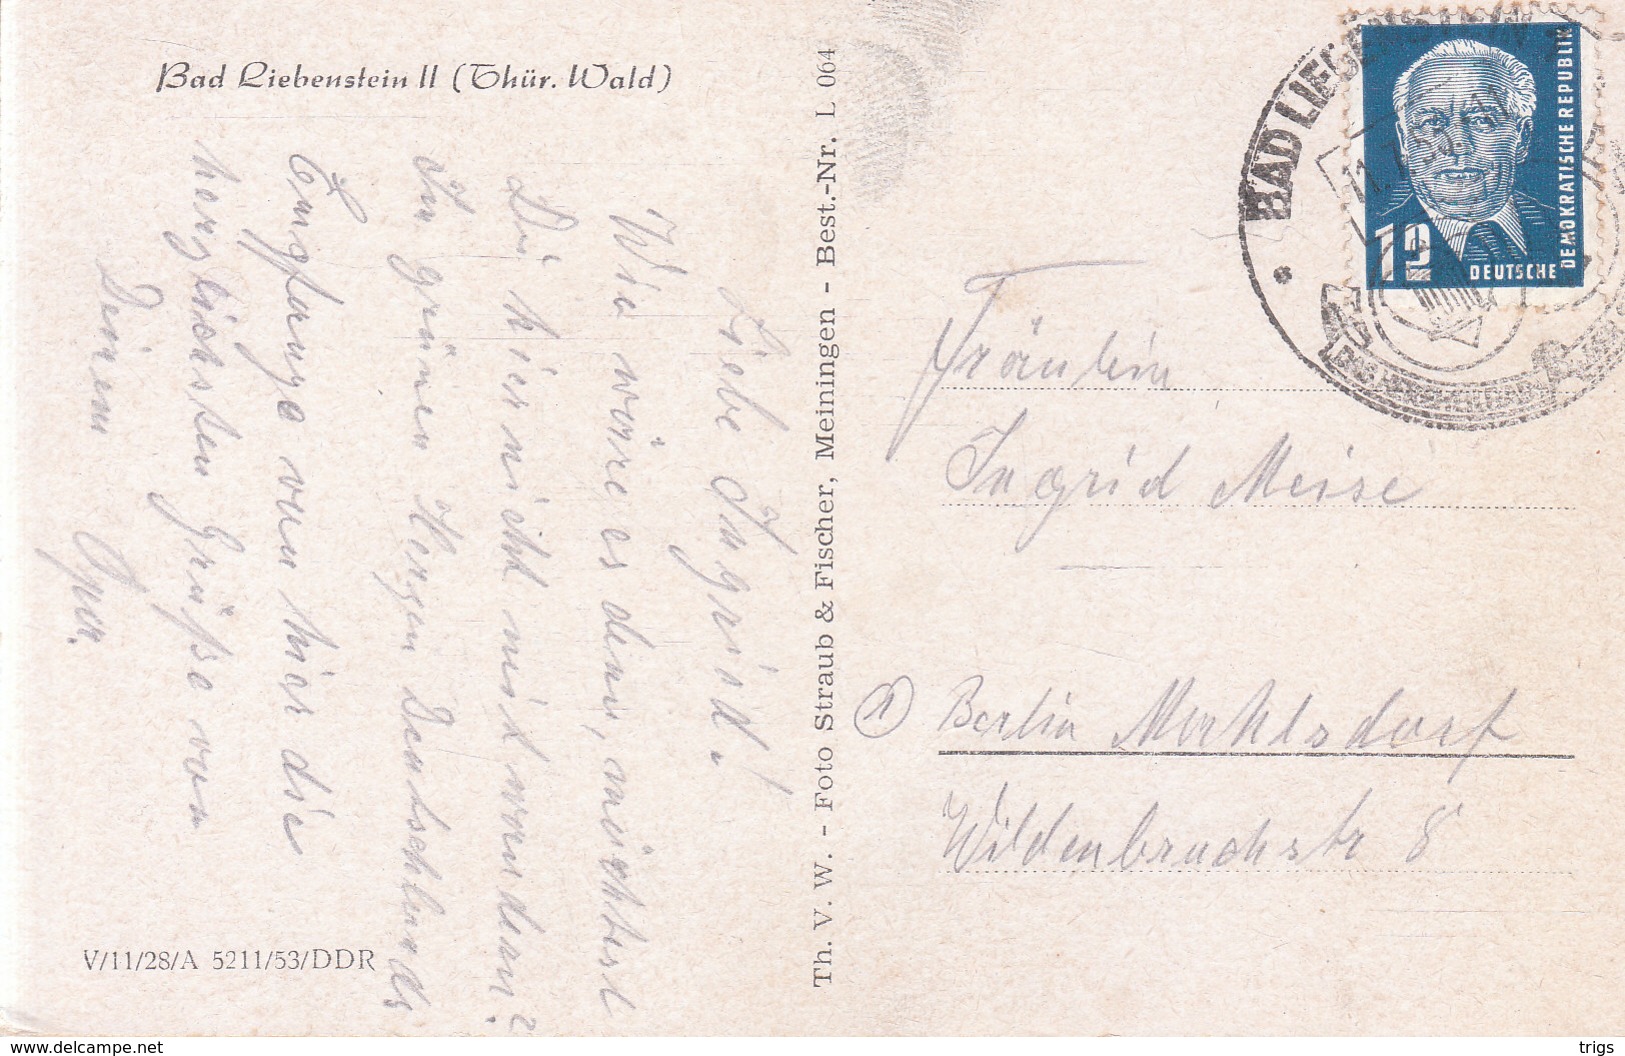 Bad Liebenstein II (Thür. Wald)
Liebe Ingrid!
Wie wäre es denn, möchtest
Du hier nicht mit wandern?
Im grünen Herzen Deutschlands
Empfange von hier die
herzlichsten Grüße von
Deinem
Opa.
V/11/28/A 5211/53/DDR
Th. V. W. - Foto Straub & Fischer, Meiningen - Best.-Nr. L 064
BAD LIEBENSTEIN
12
DEUTSCHE
DEMOKRATISCHE REPUBLIK
Fräulein
Ingrid Meise
Berlin Mahlsdorf
Wildenbruchstr 8
www.delcampe.net
trigs